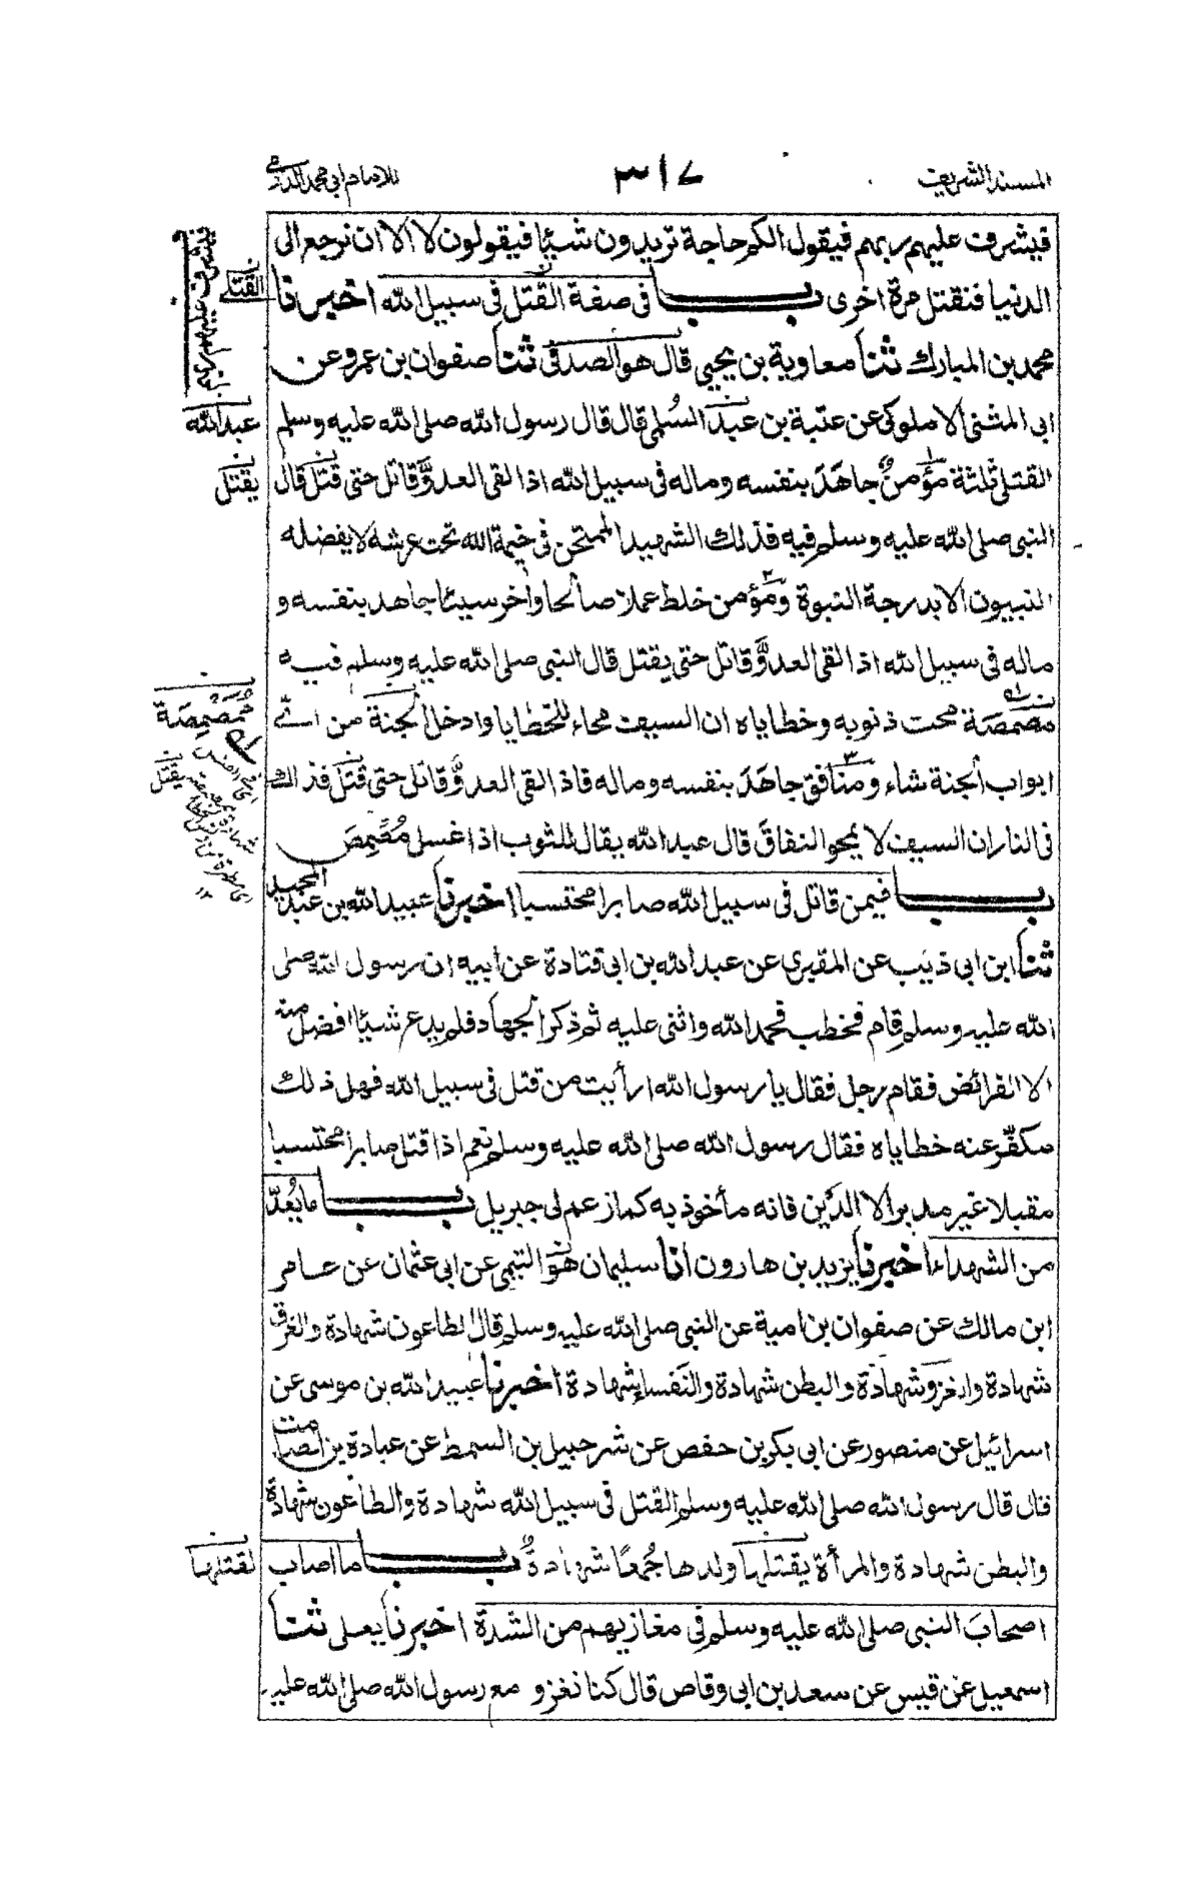 المسند الشريف
٣١٧
للامام ابى محمد الدارمى
فيشرف عليهم ربهم فيقول الكم حاجة تريدون شيئا فيقولون لا الا ان نرجع الى
الدنيا فنقتل مرة اخرى باب فى صفة القتل فى سبيل الله اخبرنا
محمد بن المبارك ثنا معاوية بن يحيى قال هو الصدفى ثنا صفوان بن عمرو عن
ابى المثنى الاملوكى عن عتبة بن عبد السلمى قال قال رسول الله صلى الله عليه وسلم
القتلى ثلثة مؤمن جاهَدَ بنفسه وماله فى سبيل الله اذا لقى العدوَّ قاتل حتى قتل قال
النبى صلى الله عليه وسلم فيه فذلك الشهيد الممتحن فى خيمة الله تحت عرشه لا يفضله
النبيون الا بدرجة النبوة ومؤمن خلط عملا صالحا واخر سيئا جاهد بنفسه و
ماله فى سبيل الله اذا لقى العدوَّ قاتل حتى يقتل قال النبى صلى الله عليه وسلم فيه
مصمصة محت ذنوبه وخطاياه ان السيف محاء للخطايا وادخل الجنة من اىّ
ابواب الجنة شاء ومنافق جاهَدَ بنفسه وماله فاذا لقى العدوَّ قاتل حتى قتل فذاك
فى النار ان السيف لا يمحو النفاقَ قال عبد الله يقال للثوب اذا غسل مُصْمِصَ
باب فيمن قاتل فى سبيل الله صابرا محتسبا اخبرنا عبيد الله بن عبد المجيد
ثنا ابن ابى ذئب عن المقبرى عن عبد الله بن ابى قتادة عن ابيه ان رسول الله صلى
الله عليه وسلم قام فخطب فحمد الله واثنى عليه ثم ذكر الجهاد فلم يدع شيئا افضل منه
الا الفرائض فقام رجل فقال يا رسول الله ارأيت من قتل فى سبيل الله فهل ذلك
مكفّر عنه خطاياه فقال رسول الله صلى الله عليه وسلم نعم اذا قتل صابرا محتسبا
مقبلا غير مدبر الا الدَّين فانه مأخوذ به كما زعم لى جبريل باب ما يُعَدّ
من الشهداء اخبرنا يزيد بن هارون انا سليمان هو التيمى عن ابى عثمان عن عامر
ابن مالك عن صفوان بن امية عن النبى صلى الله عليه وسلم قال الطاعون شهادة والغرق
شهادة والغزو شهادة والبطن شهادة والنفساء شهادة اخبرنا عبيد الله بن موسى عن
اسرائيل عن منصور عن ابى بكر بن حفص عن شرحبيل بن السمط عن عبادة بن الصامت
قال قال رسول الله صلى الله عليه وسلم القتل فى سبيل الله شهادة والطاعون شهادة
والبطن شهادة والمرأة يقتلها ولدها جُمعًا شهادةٌ باب ما اصاب
اصحابَ النبى صلى الله عليه وسلم فى مغازيهم من الشدة اخبرنا يعلى ثنا
اسمعيل عن قيس عن سعد بن ابى وقاص قال كنا نغزو مع رسول الله صلى الله عليه
القتلى
عبد الله
يقتل
مُمَصْمِصَة
يقتل
لقتلها